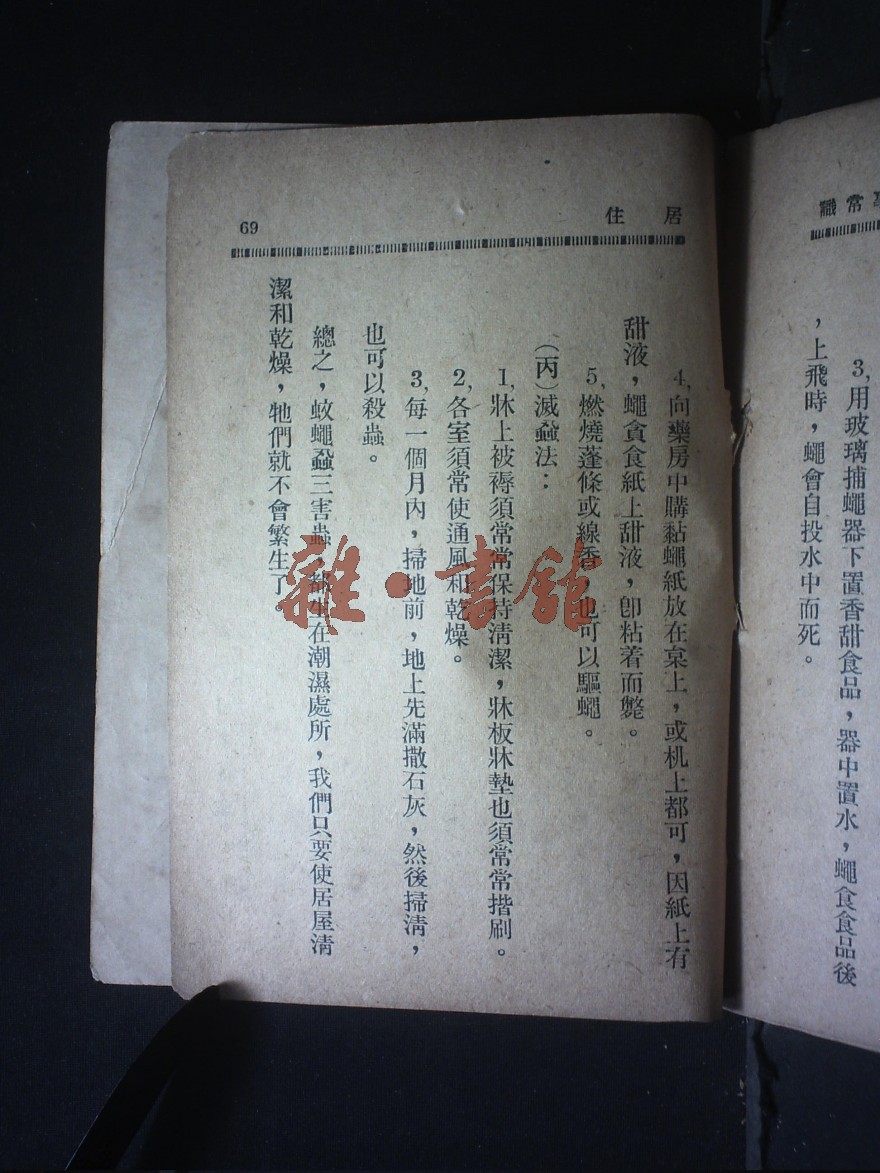 識常
3,用玻璃捕蠅器下置香甜食品，器中置水，蠅食食品後
，上飛時，蠅會自投水中而死。
居住
69
4,向藥房中購黏蠅紙放在棹上，或机上都可，因紙上有
甜液，蠅貪食紙上甜液，卽粘着而斃。
5,燃燒蓬條或線香，也可以驅蠅。
（丙）滅蝨法：
1,牀上被褥須常常保持淸潔，牀板牀墊也須常常揩刷。
2,各室須常使通風和乾燥。
3,每一個月內，掃地前，地上先滿撒石灰，然後掃淸，
也可以殺蟲。
總之，蚊蠅蝨三害蟲，都生在潮濕處所，我們只要使居屋淸
潔和乾燥，牠們就不會繁生了。
雜·書館